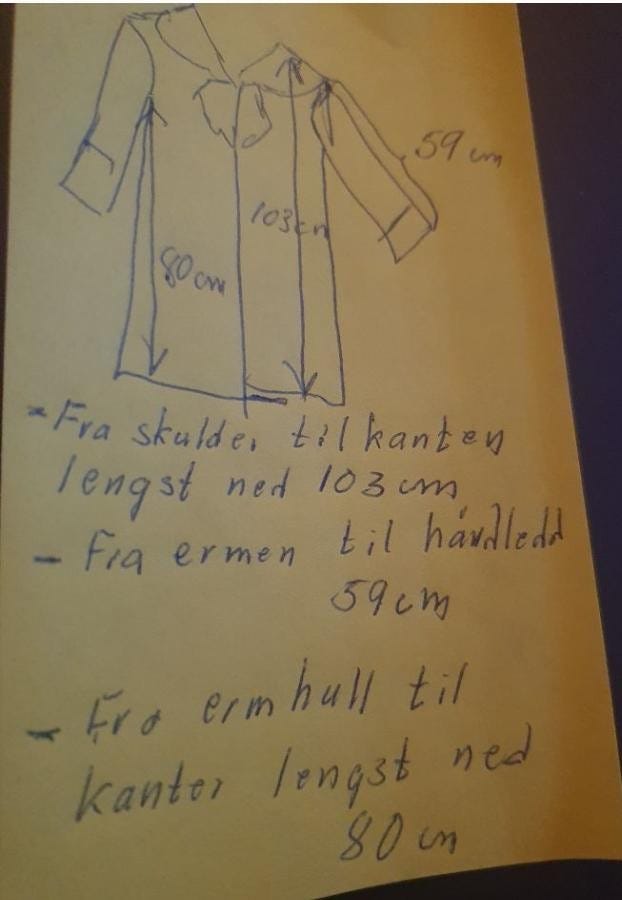 59 cm
103cm
80cm
- Fra skulder til kanten
lengst ned 103 cm
- Fra ermen til håndledd
59cm
- Fra ermhull til
kanter lengst ned
80 cm